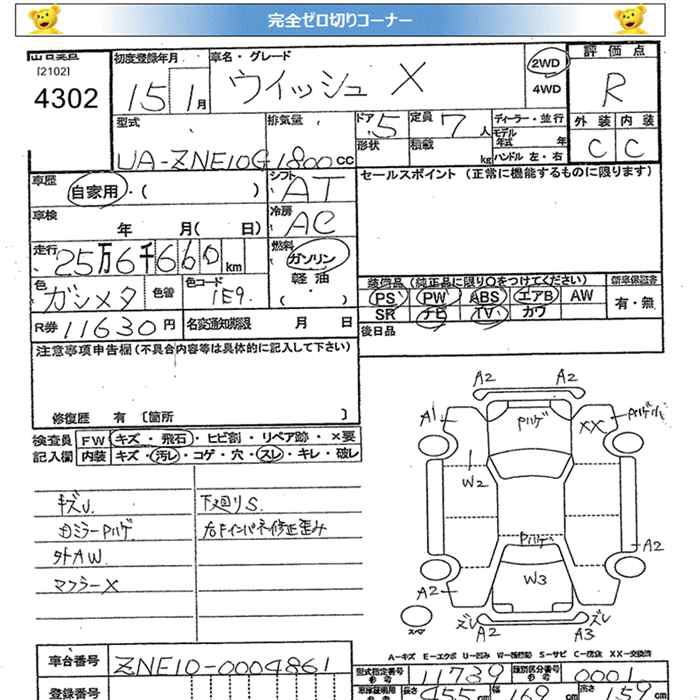 完全ゼロ切りコーナー
[2102]
4302
初度登録年月
15 1月
車名・グレード
ウイッシュ X
2WD
4WD
評価点
R
外装 内装
C C
型式
UA-ZNE10G
排気量
1800cc
ドア 5
形状
定員 7人
積載 kg
ディーラー・並行
モデル年式 年
ハンドル 左・右
車歴
自家用・( )
シフト AT
冷房 AC
セールスポイント(正常に機能するものに限ります)
車検 年 月( 日)
走行 25万6千660km
燃料
ガソリン
軽油
・( )
色 ガンメタ
色替
色コード 1E9
装備品(純正品に限り○をつけてください)
PS PW ABS エアB AW
SR ナビ TV カワ
新車保証書
有・無
R券 11630円
名変通知期限 月 日
後日品
注意事項申告欄(不具合内容等は具体的に記入して下さい)
修復歴 有 〔箇所 〕
検査員
記入欄
FW キズ・飛石・ヒビ割・リペア跡・×要
内装 キズ・汚レ・コゲ・穴・スレ・キレ・破レ
キズU.
下廻りS.
右Fインパネ修正歪み
外AW
マフラーX
A2 A2
A1
ハゲ
XX
W2
A2
ハゲ
W3
A2
ズレ
A2
ズレ
A3
スペア
A-キズ E-エクボ U-凹み W-補修跡 S-サビ C-腐食 XX-交換済
車台番号 ZNE10-0004861
登録番号
型式指定番号 11739
類別区分番号 0001
長さ 455cm
幅 169cm
高さ 159cm